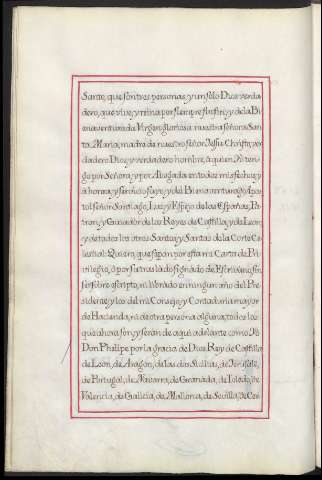 Santo, que son tres personas, y un solo Dios verda
dero, que vive, y reina por siempre sin fin; y de la Bi
enaventurada Virgen gloriosa nuestra señora San
ta Maria, madre de nuestro señor Jesu Christo, ver
dadero Dios, y verdadero hombre, à quien Yo tengo
por Señora, y por Abogada en todos mis fechos; y
à honra, y servicio suyo, y del Bienaventurado Apos
tol señor Santiago, Luz, y Espejo de las Españas, Pa
tron, y Guiador de los Reyes de Castilla, y de Leon,
y de todos los otros Santos, y Santas de la Corte Ce
lestial: Quiero, que sepan por esta mi Carta de Pri
vilegio, ò por su traslado signado de Escrivano, sin
ser sobre escripto, ni librado en ningun año del Pre
sidente, y los del mi Consejo, y Contaduria mayor
de Hacienda, ni de otra persona alguna, todos los
que ahora son, y serán de aqui adelante como Yo
Don Phelipe por la gracia de Dios, Rey de Castilla
de Leon, de Aragon, de las dos Sicilias, de Jerusalem,
de Portugal, de Navarra, de Granada, de Toledo, de
Valencia, de Galicia, de Mallorca, de Sevilla, de Cer